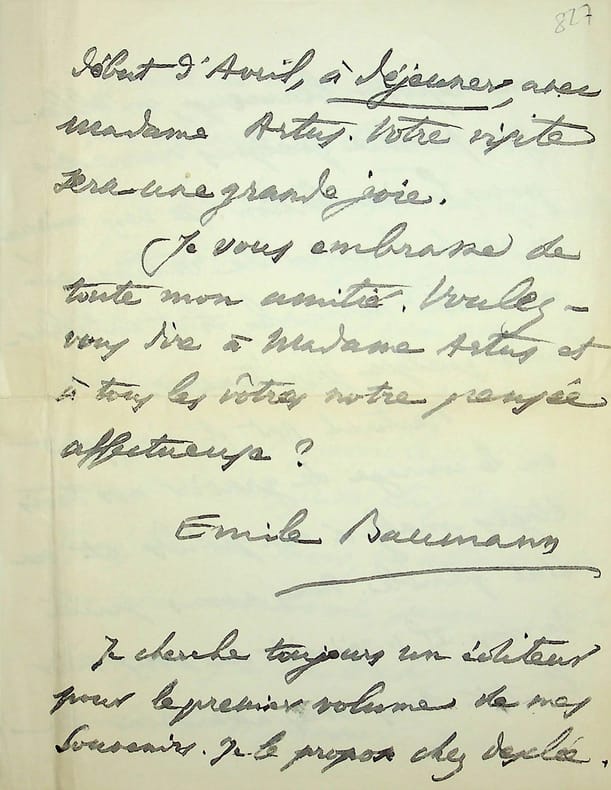 827
début d'Avril, à déjeuner, avec
madame Artus. Votre visite
sera une grande joie.
Je vous embrasse de
toute mon amitié. Voulez-
vous dire à Madame Artus et
à tous les vôtres notre pensée
affectueuse ?
Emile Baumann
Je cherche toujours un éditeur
pour le premier volume de mes
Souvenirs. Je le propose chez Desclée.